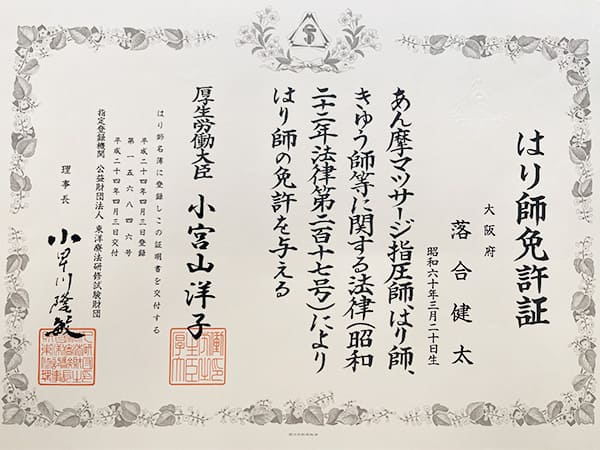 はり師免許証
大阪府
落合健太
昭和六十年三月二十日生
あん摩マツサージ指圧師、はり師、
きゆう師等に関する法律（昭和
二十二年法律第二百十七号）により
はり師の免許を与える
厚生労働大臣 小宮山洋子
はり師名簿に登録しこの証明書を交付する
平成二十四年四月三日登録
第一五六八四六号
平成二十四年四月三日交付
指定登録機関 公益財団法人 東洋療法研修試験財団
理事長 小早川隆敏